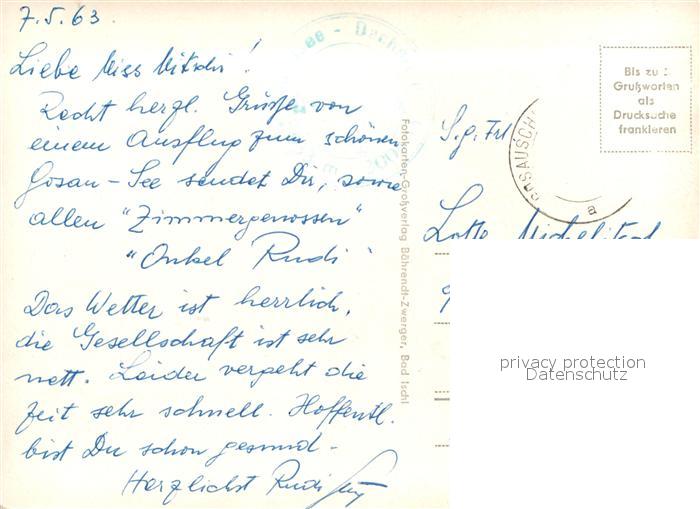 7.5.63
Liebe Miss Mitschi!
Recht herzl. Grüße von
einem Ausflug zum schönen
Gosau-See sendet Dir, sowie
allen "Zimmergenossen"
"Onkel Rudi"
Das Wetter ist herrlich,
die Gesellschaft ist sehr
nett. Leider vergeht die
Zeit sehr schnell. Hoffentl.
bist Du schon gesund.
Herzlichst Rudi
ee - Dachs
Fotokarten-Großverlag Böhrendt-Zwerger, Bad Ischl
Bis zu 5
Grußworten
als
Drucksache
frankieren
GOSAUSCH
a
S.g. Frl
Lotte
privacy protection
Datenschutz